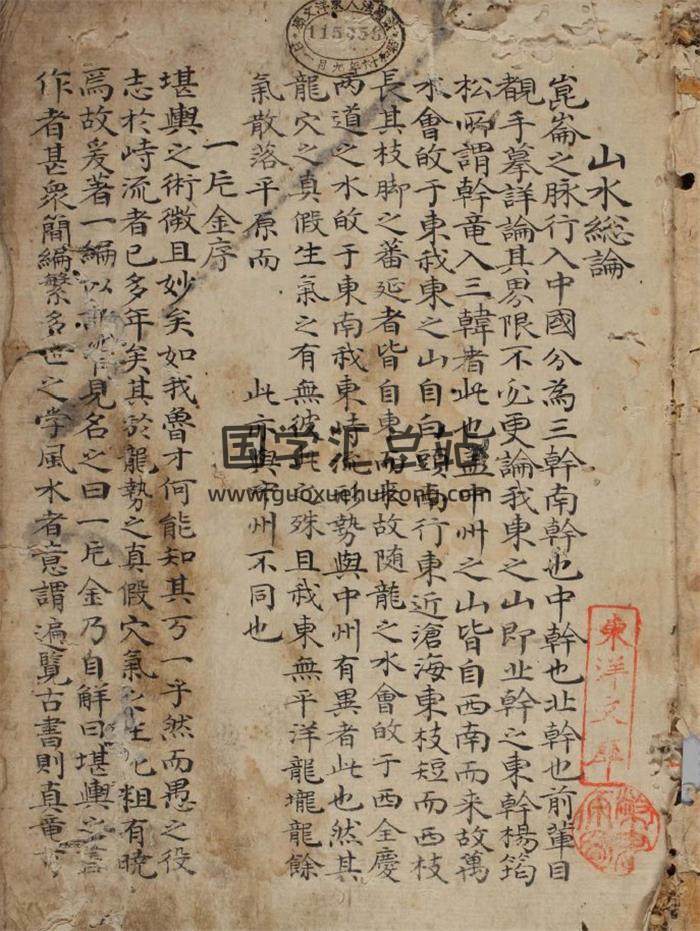 山水総論
崑崙之脉行入中國分為三幹南幹也中幹也北幹也前輩目
覩手摹詳論其界限不必更論我東之山即北幹之東幹楊筠
松所謂幹竜入三韓者此也盖中州之山皆自西南而来故萬
水會㱕于東我東之山自白頭南行東近滄海東枝短而西枝
長其枝脚之蕃延者皆自東而来故随龍之水會㱕于西全慶
两道之水㱕于東南我東峙流形勢與中州有異者此也然其
龍穴之真假生氣之有無彼此殊且我東無平洋龍壠龍餘
氣散落平原而 此亦與中州不同也
一片金序
堪輿之術微且妙矣如我魯才何能知其万一乎然而愚之役
志於峙流者已多年矣其於龍勢之真假穴氣之生死粗有曉
焉故爰著一編以 管見名之曰一片金乃自解曰堪輿之書
作者甚衆簡編繁多世之学風水者意謂遍覧古書則真竜
東洋文庫
115358
国学汇总站
www.guoxuehuizong.com